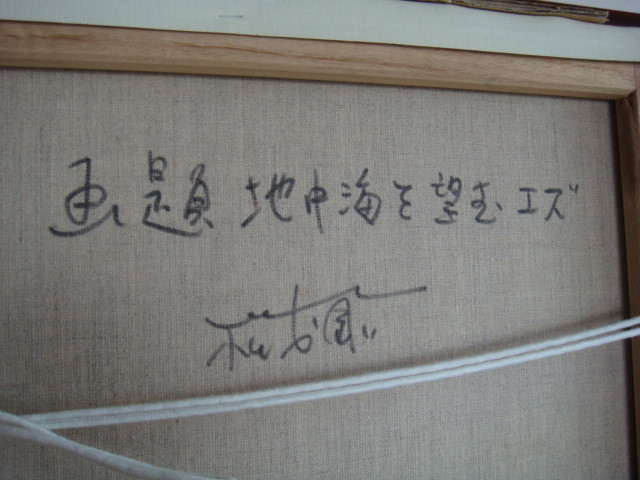 画題 地中海を望むエズ